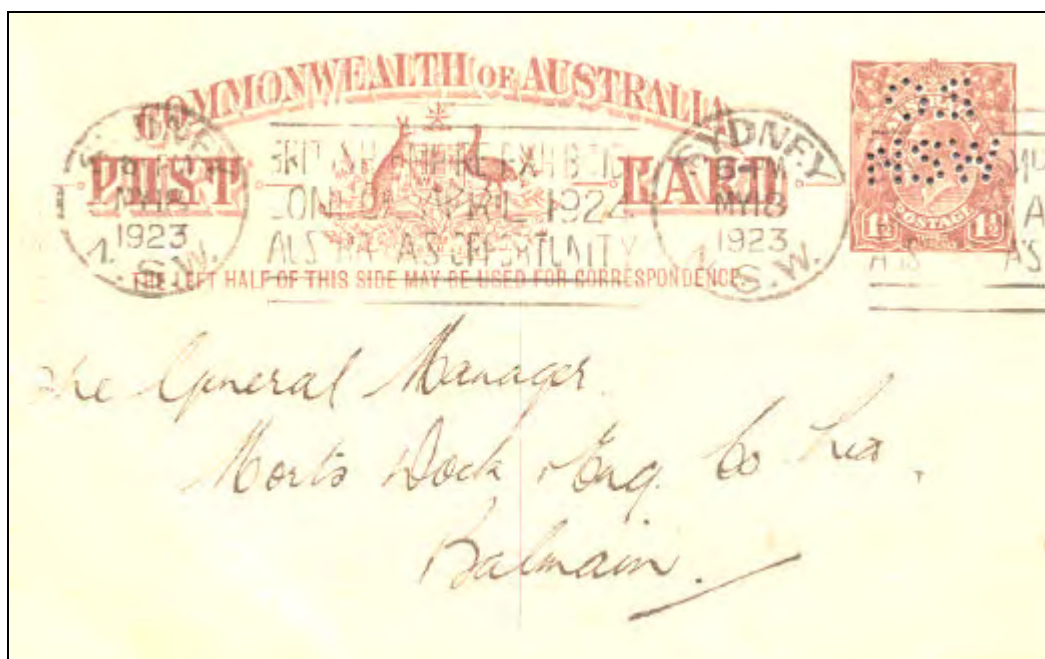 COMMONWEALTH OF AUSTRALIA
POST CARD
THE LEFT HALF OF THIS SIDE MAY BE USED FOR CORRESPONDENCE.
SYDNEY
MY18
1923
N.S.W.
BRITISH EMPIRE EXHIBITION
LONDON APRIL 1924
AUSTRALIA'S OPPORTUNITY
SYDNEY
MY18
1923
N.S.W.
OS
NSW
POSTAGE
1½ 1½
The General Manager
Morts Dock & Eng. Co Ltd.
Balmain.